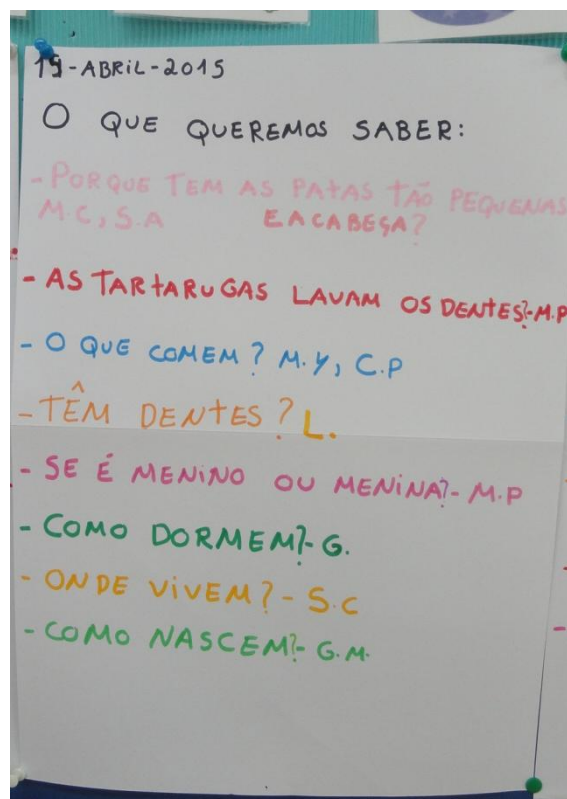 15-ABRIL-2015
O QUE QUEREMOS SABER:
- PORQUE TEM AS PATAS TÃO PEQUENAS
M.C, S.A E A CABEÇA?
- AS TARTARUGAS LAVAM OS DENTES?-M.P
- O QUE COMEM? M.Y, C.P
- TÊM DENTES? L.
- SE É MENINO OU MENINA?- M.P
- COMO DORMEM?- G.
- ONDE VIVEM? - S.C
- COMO NASCEM?- G.M.